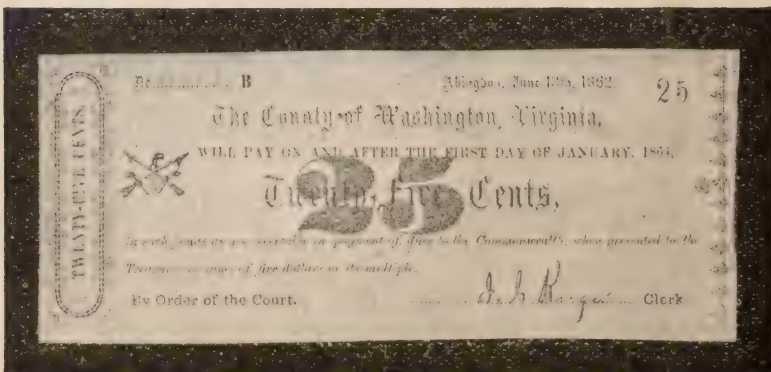 TWENTY-FIVE CENTS.
No. B Abingdon, June 1862. 25
The County of Washington, Virginia,
WILL PAY ON AND AFTER THE FIRST DAY OF JANUARY, 1864,
25
Twenty-five Cents,
In such funds as are receivable in payment of dues to the Commonwealth, when presented to the
Treasurer in sums of five dollars or its multiple.
By Order of the Court. Clerk